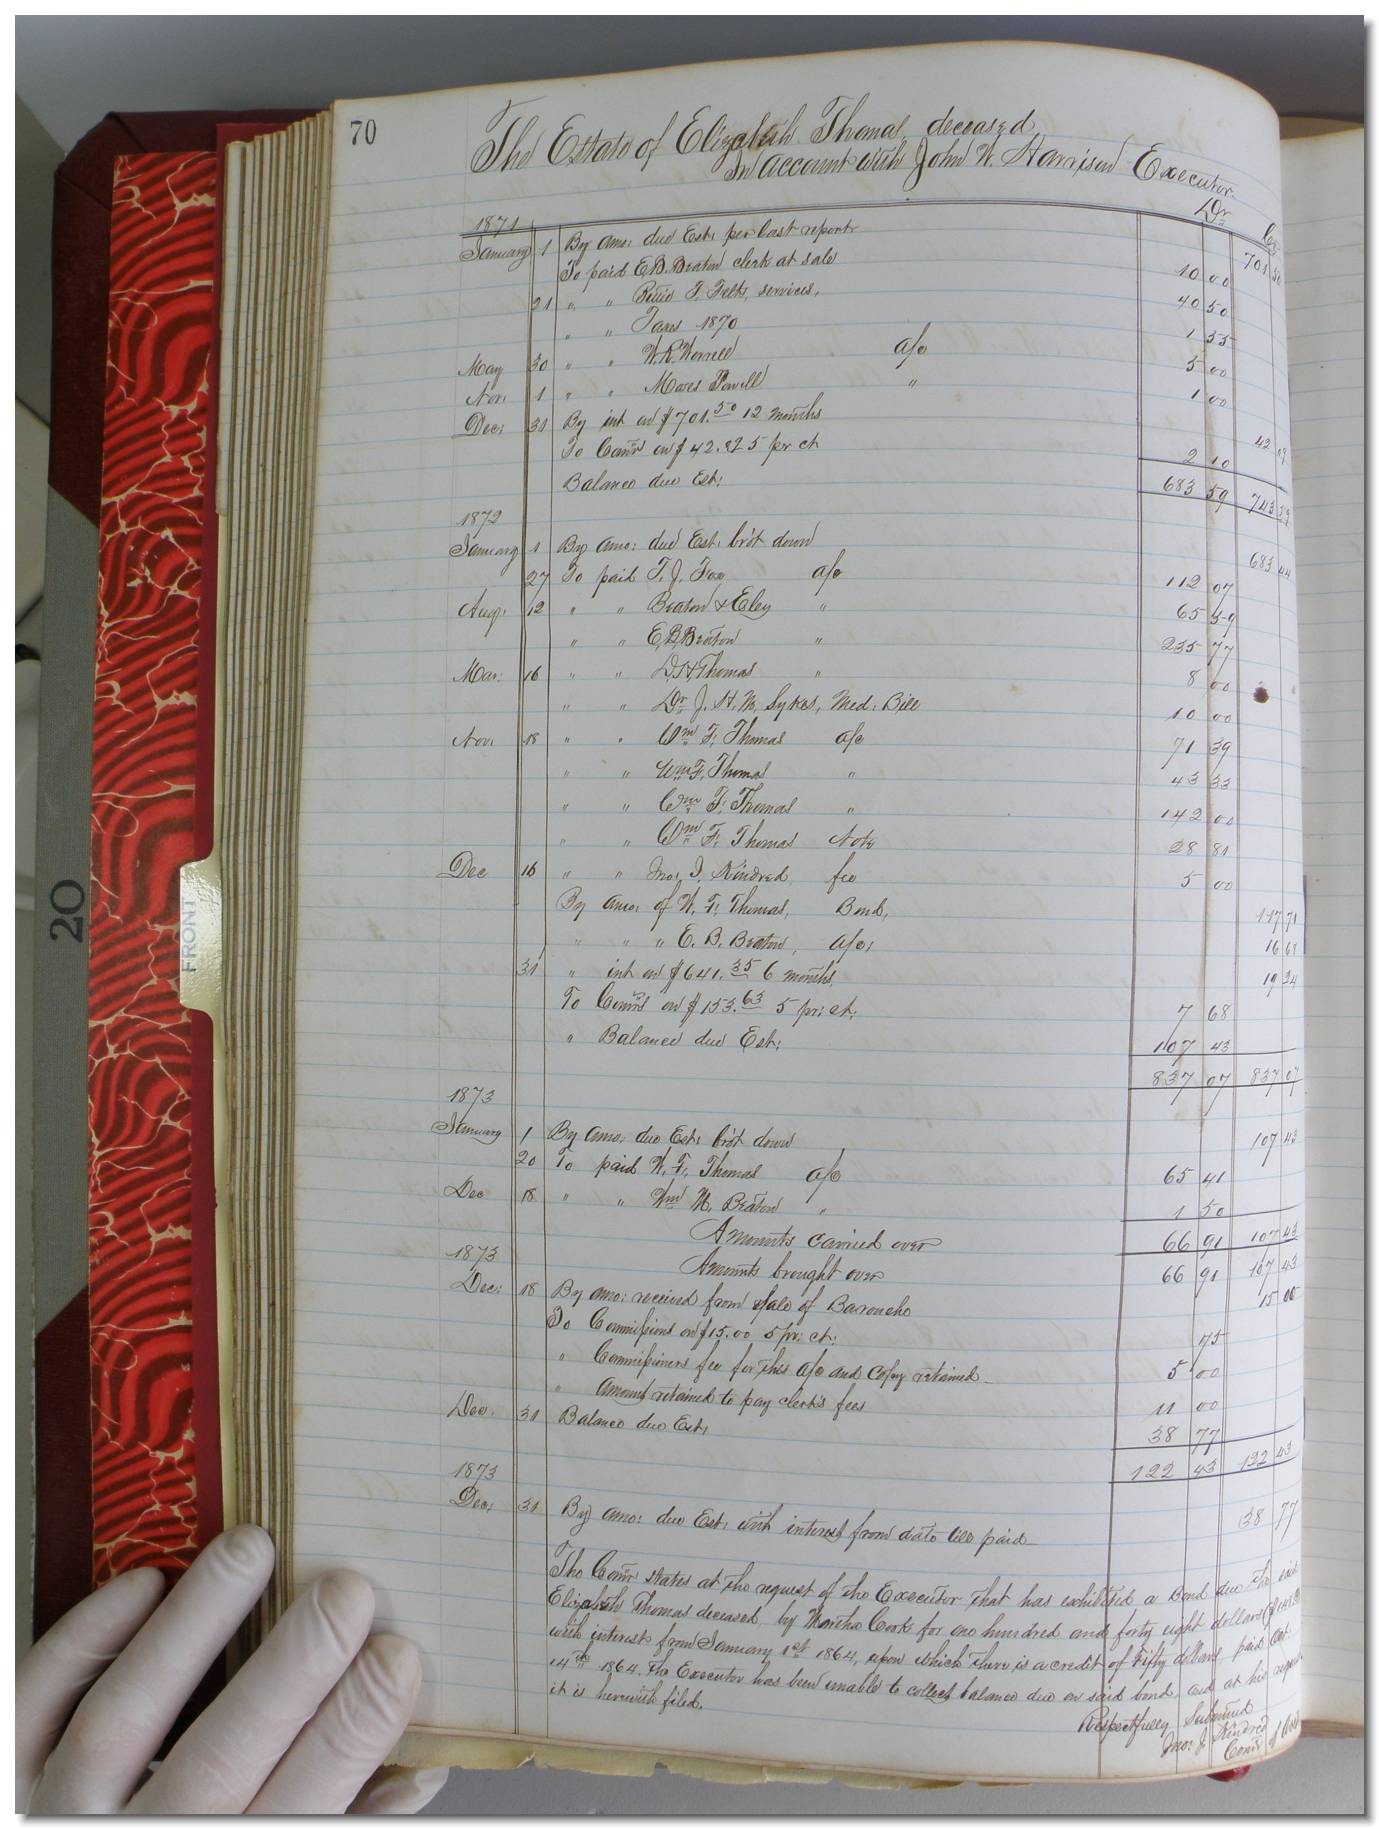 70
The Estate of Elizabeth Thomas, deceased
In account with John W. Harrison Executor.
Dr. Cr.
1871
January 1 By amo: due Est: per last report 701 50
To paid E.B. Beaton clerk at sale 10 00
21 " " F. Felts, services, 40 50
" " Taxes 1870 1 55
May 30 " " W.R. Worrell a/c 5 00
Nov: 1 " " Moses Powell " 1 00
Dec: 31 By int on $701.50 12 months 42 09
To Comrs on $42. 5 pr ct 2 10
Balance due Est: 683 59 743 59
1872
January 1 By amo: due Est: bro't down 683 44
27 To paid T. J. Fox a/c 112 07
Aug: 12 " " Beaton & Eley " 65 59
" " E.B. Beaton " 235 77
Mar: 16 " " D.H. Thomas " 8 00
" " Dr J. H. M. Sykes, Med: Bill 10 00
Nov: 18 " " Wm F. Thomas a/c 71 39
" " Wm F. Thomas " 43 33
" " Wm F. Thomas " 142 00
" " Wm F. Thomas Note 28 81
Dec 16 " " Jno: J. Kindred, fee 5 00
By amo: of W. F. Thomas, Bond, 117 71
" " " E. B. Beaton, a/c, 16 68
31 " int on $641.35 6 months, 19 24
To Comrs on $153.63 5 pr: ct: 7 68
" Balance due Est: 107 43
837 07 837 07
1873
January 1 By amo: due Est: bro't down 107 43
20 To paid W. F. Thomas a/c 65 41
Dec 18 " " Wm W. Beaton " 1 50
Amounts carried over 66 91 107 43
1873
Amounts brought over 66 91 107 43
Dec: 18 By amo: received from sale of 15 00
To Commissions on $15.00 5 pr: ct: 75
" Commissioners fee for this a/c and copy retained 5 00
" Amount retained to pay clerk's fees 11 00
Dec. 31 Balance due Est: 38 77
122 43 122 43
1873
Dec: 31 By amo: due Est: with interest from date till paid 38 77
The Comr states at the request of the Executor that has exhibited a Bond due the
Elizabeth Thomas deceased, by Martha Cook for one hundred and forty eight dollars
with interest from January 1st 1864, upon which there is a credit of Fifty dollars paid Oct.
14th 1864. The Executor has been unable to collect balance due on said bond, and at his
it is herewith filed.
Respectfully Submitted
Jno: J. Kindred
Comr of
FRONT
20